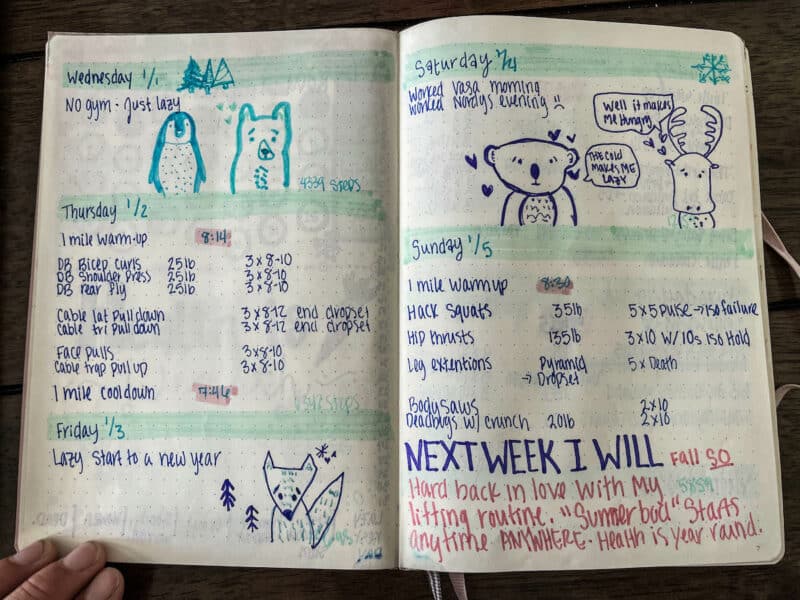 Wednesday 1/1
NO gym - Just lazy
4339 Steps
Thursday 1/2
1 mile warm-up 8:14
DB Bicep curls 25lb 3x8-10
DB Shoulder Press 25lb 3x8-10
DB rear fly 25lb 3x8-10
Cable lat pulldown 3x8-12 end dropset
Cable tri pulldown 3x8-12 end dropset
Face pulls 3x8-10
Cable trap pull up 3x8-10
1 mile cooldown 7:46
Steps
Friday 1/3
Lazy start to a new year
Saturday 1/4
Worked Vasa morning
Worked Nordys evening
Well it makes
Me Hungry
THE COLD
MAKES ME
LAZY
Sunday 1/5
1 mile warmup 8:30
Hack Squats 35lb 5x5 Pulse → Iso failure
Hip thrusts 135lb 3x10 W/10s Iso Hold
Leg extentions Pyramid 5x Death
→ Dropset
Body Saws 2x10
Deadbugs w/ crunch 20lb 2x10
NEXT WEEK I WILL Fall SO
Hard back in love with My 5859
lifting routine. "Summer bod" Starts
anytime ANYWHERE. Health is year round.